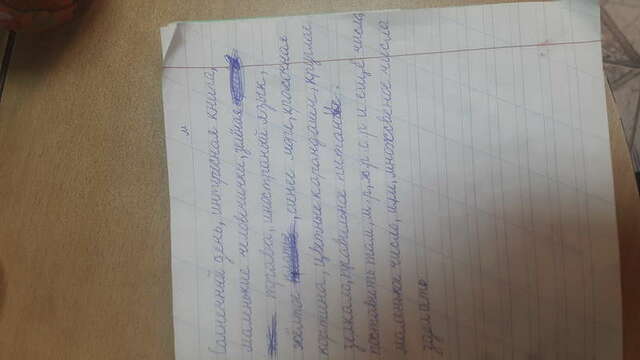 м
Солнечный день, интересная книга,
маленькие человечички, зелёная
трава, иностраный язык,
жёлтое , синее море, красочная
картина, цветные карандаши, круглое
зеркало, правильное питание.
поставить там, м, р, ж.р с.р и ещё число,
маленькое число, или, множсвеное число
зделать